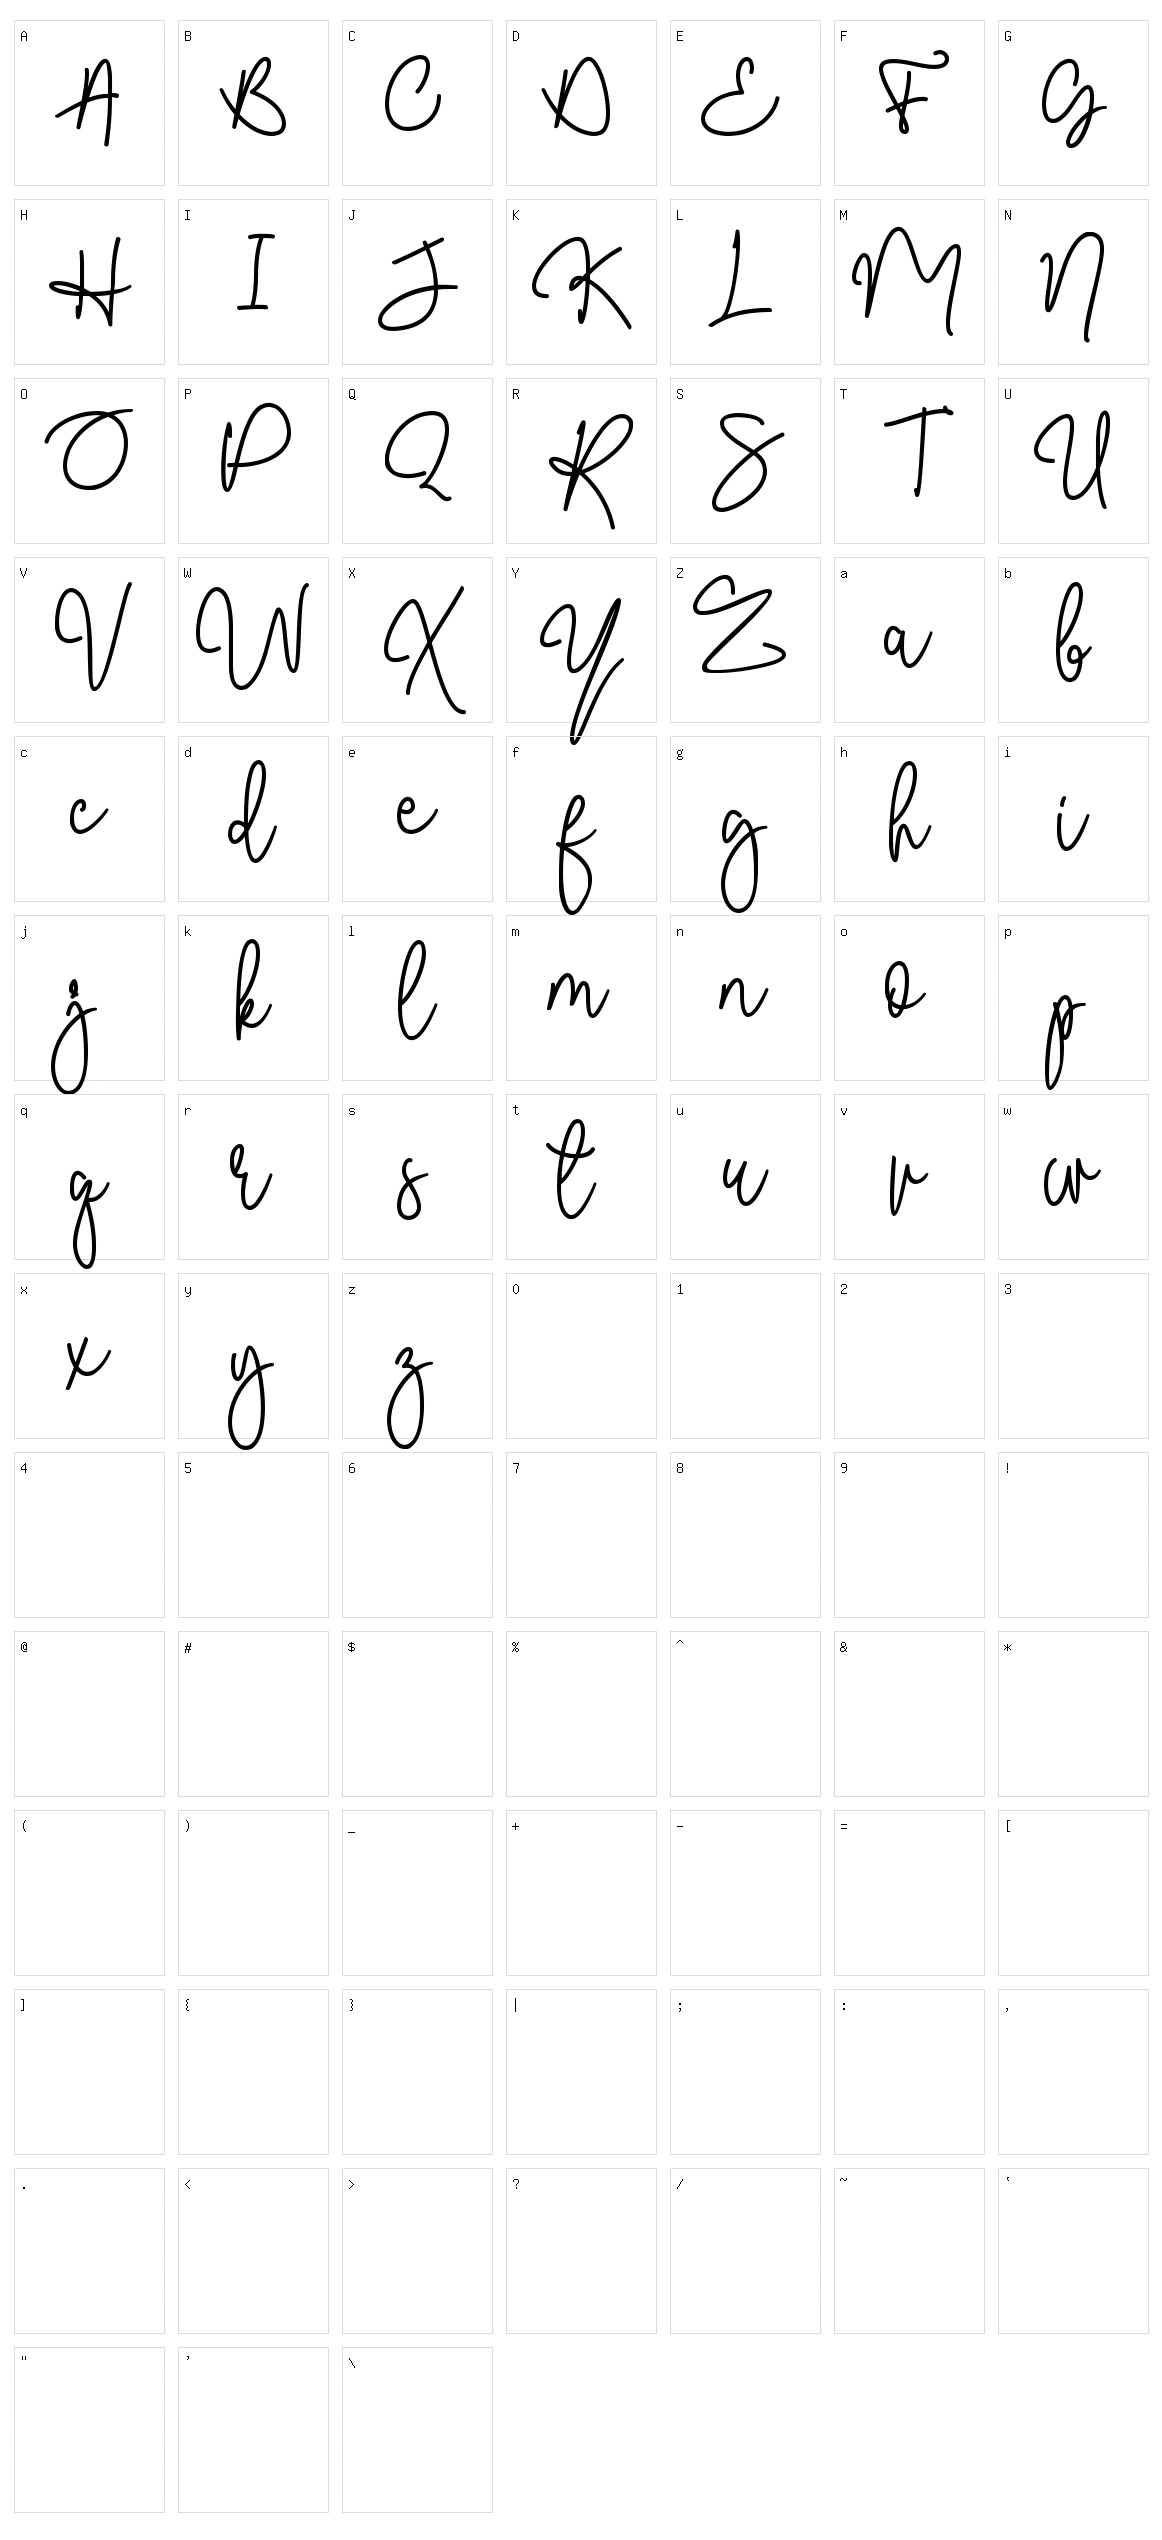 A B C D E F G
A B C D E F G
H I J K L M N
H I J K L M N
O P Q R S T U
O P Q R S T U
V W X Y Z a b
V W X Y Z a b
c d e f g h i
c d e f g h i
j k l m n o p
j k l m n o p
q r s t u v w
q r s t u v w
x y z 0 1 2 3
x y z
4 5 6 7 8 9 !
@ # $ % ^ & *
( ) _ + - = [
] { } | ; : ,
. < > ? / ~ `
" ' \